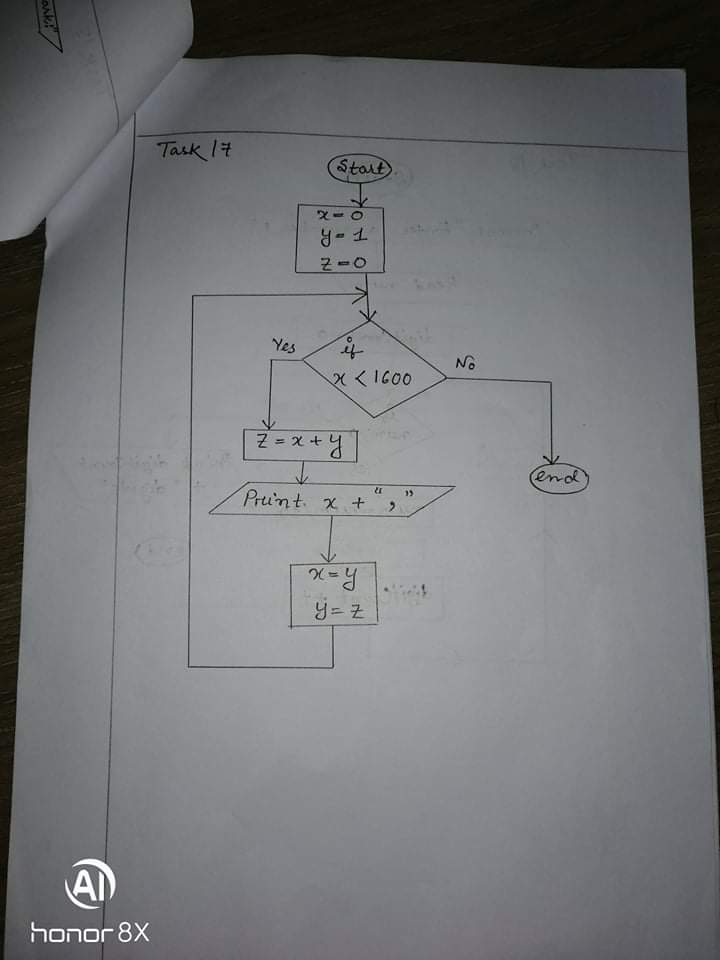 Task 17
Start
x = 0
y = 1
z = 0
if
x < 1600
Yes
No
z = x + y
end
Print x + “,”
x = y
y = z
AI
honor 8X